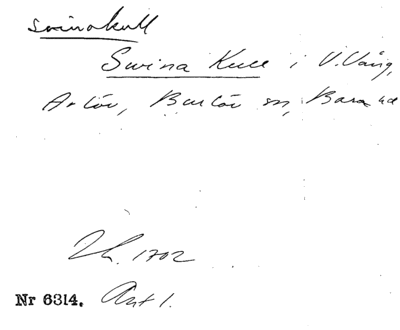 svinakull
Svina Kull i V. Vång,
Arlöv, Burlöv sn, Bara hd
1702
Nr 6314. Ant 1.